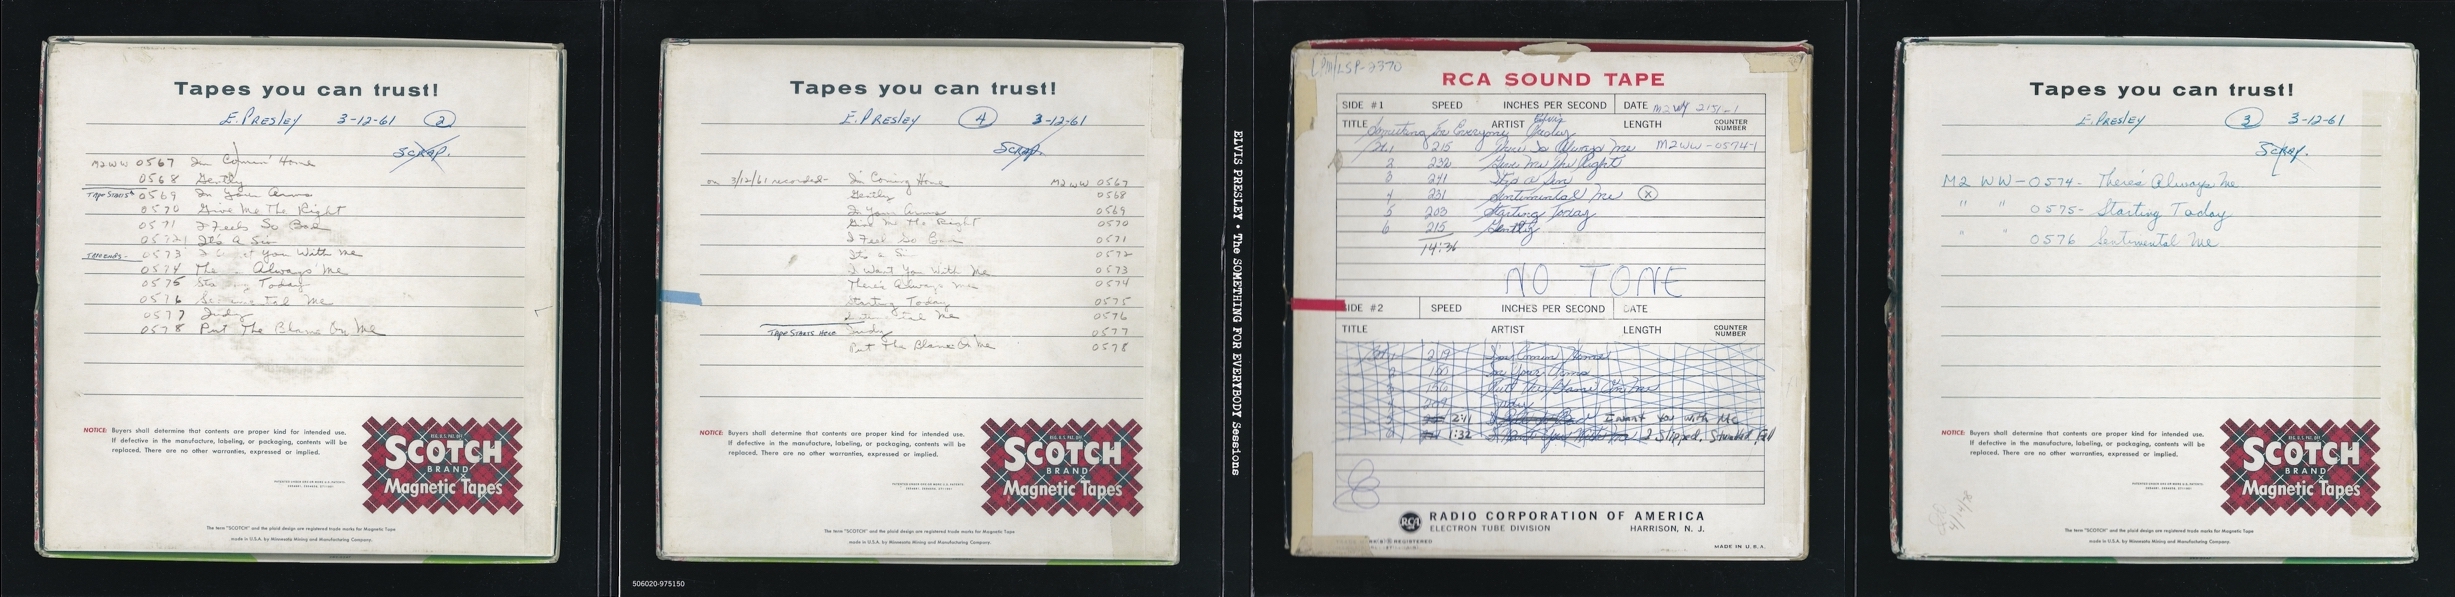 Tapes you can trust!
E. PRESLEY 3-12-61 2
SCRAP.
M2WW 0567 I'm Comin' Home
0568 Gently
TAPE STARTS 0569 In Your Arms
0570 Give Me The Right
0571 I Feels So Bad
0572 It's A Sin
TAPE ENDS- 0573 I You With Me
0574 The Always Me
0575 Sta Today
0576 Se tal Me
0577 Judy
0578 Put The Blame On Me
NOTICE: Buyers shall determine that contents are proper kind for intended use.
If defective in the manufacture, labeling, or packaging, contents will be
replaced. There are no other warranties, expressed or implied.
REG. U.S. PAT. OFF.
SCOTCH
BRAND
Magnetic Tapes
The term "SCOTCH" and the plaid design are registered trade marks for Magnetic Tape
made in U.S.A. by Minnesota Mining and Manufacturing Company.
Tapes you can trust!
E. PRESLEY 4 3-12-61
SCRAP.
on 3/12/61 recorded- I'm Coming Home M2WW 0567
Gently 0568
In Your Arms 0569
Give Me The Right 0570
I Feel So 0571
It's a Sin 0572
I Want You With Me 0573
There's Always Me 0574
Starting Today 0575
Me 0576
TAPE STARTS HERE Judy 0577
Put The Blame On Me 0578
NOTICE: Buyers shall determine that contents are proper kind for intended use.
If defective in the manufacture, labeling, or packaging, contents will be
replaced. There are no other warranties, expressed or implied.
REG. U.S. PAT. OFF.
SCOTCH
BRAND
Magnetic Tapes
The term "SCOTCH" and the plaid design are registered trade marks for Magnetic Tape
made in U.S.A. by Minnesota Mining and Manufacturing Company.
506020-975150
ELVIS PRESLEY • The SOMETHING FOR EVERYBODY Sessions
LPM/LSP-2370
RCA SOUND TAPE
SIDE #1 SPEED INCHES PER SECOND DATE M2WY 2151-1
TITLE Something For Everyone ARTIST Elvis Presley LENGTH COUNTER NUMBER
1 215 There Is Always Me M2WW-0574-1
2 232 Give Me The Right
3 241 It's a Sin
4 231 Sentimental Me X
5 203 Starting Today
6 215 Gently
14:36
NO TONE
SIDE #2 SPEED INCHES PER SECOND DATE
TITLE ARTIST LENGTH COUNTER NUMBER
1 219 I'm Comin Home
2 In Your Arms
3 156 Put The Blame On Me
4 Judy
5 241 I want you with Me
6 1:32 I Want You With Me I Slipped, Stumbled, Fell
RCA
RADIO CORPORATION OF AMERICA
ELECTRON TUBE DIVISION HARRISON, N. J.
MADE IN U.S.A.
Tapes you can trust!
E. PRESLEY 3 3-12-61
SCRAP.
M2 WW-0574- There's Always Me
" " 0575- Starting Today
" " 0576 Sentimental Me
NOTICE: Buyers shall determine that contents are proper kind for intended use.
If defective in the manufacture, labeling, or packaging, contents will be
replaced. There are no other warranties, expressed or implied.
REG. U.S. PAT. OFF.
SCOTCH
BRAND
Magnetic Tapes
The term "SCOTCH" and the plaid design are registered trade marks for Magnetic Tape
made in U.S.A. by Minnesota Mining and Manufacturing Company.